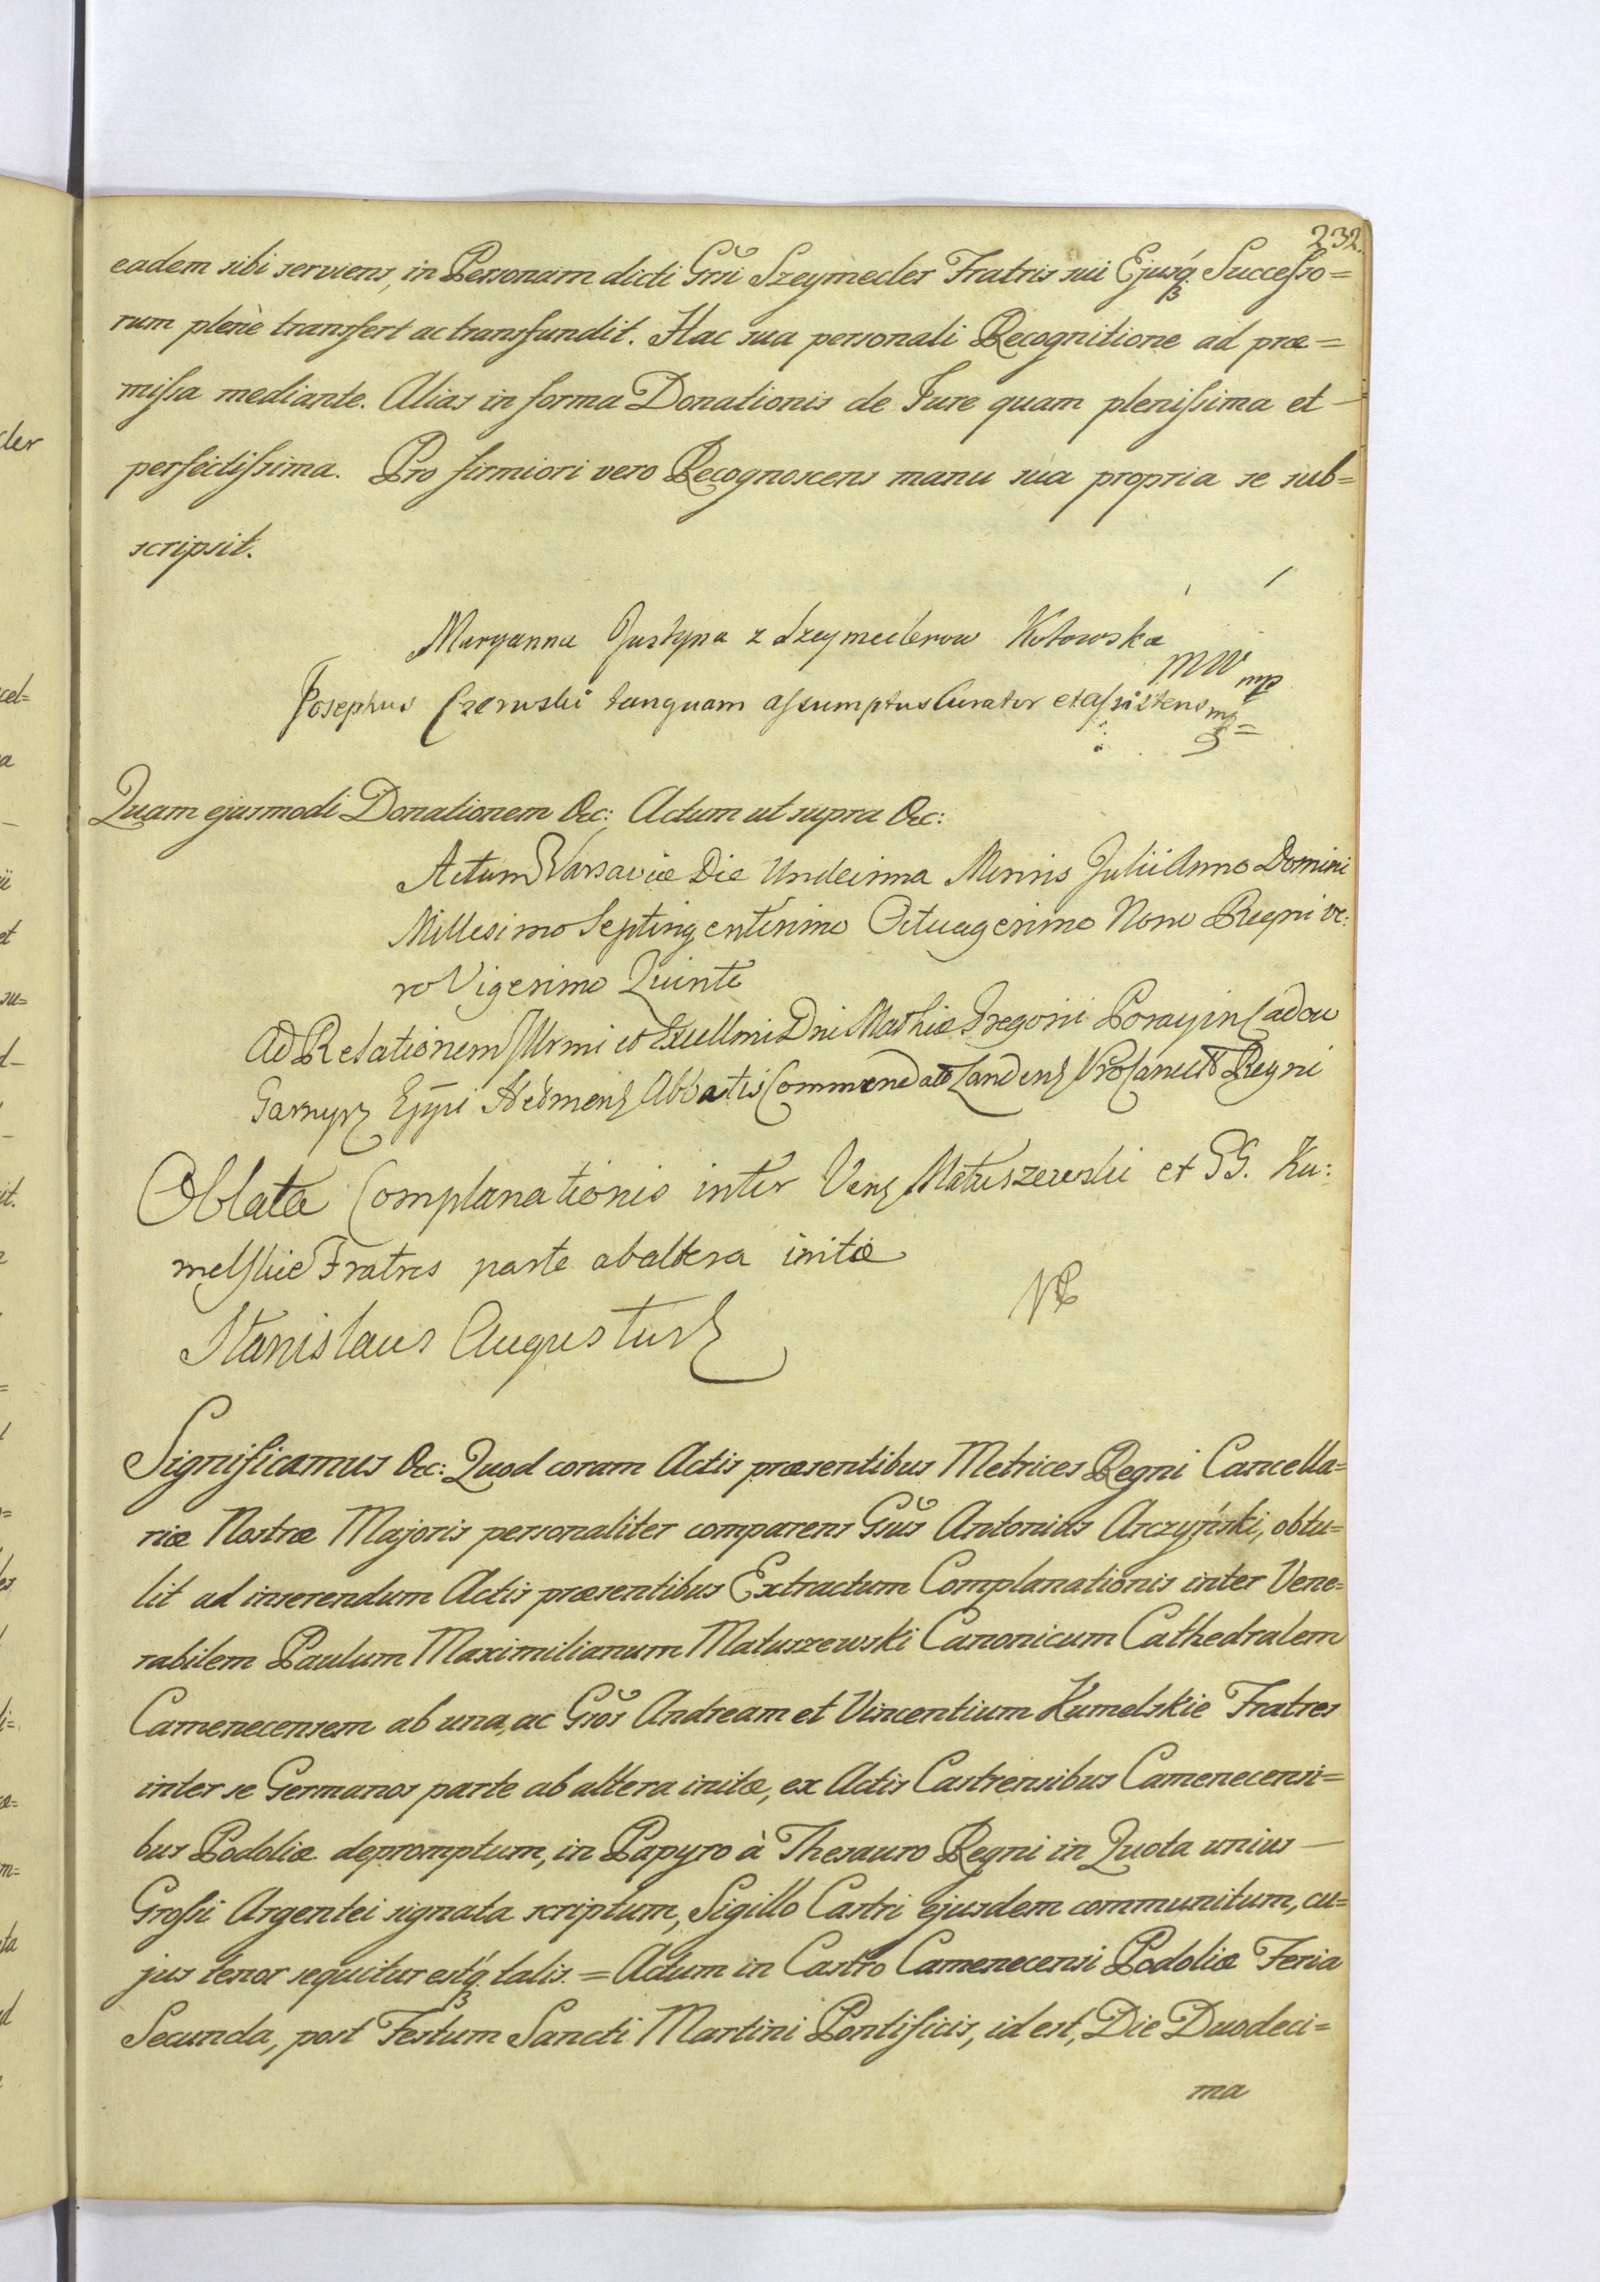 232.
eadem sibi serviens, in Personam dicti Grsi Szeymecler Fratris sui Ejusq3 Successo=
rum plenè transfert ac transfundit. Hac sua personali Recognitione ad præ=
missa mediante. Alias in forma Donationis de Jure quam plenissima et —
perfectissima. Pro firmiori vero Recognoscens manu sua propria se sub=
scripsit.
Maryanna Justyna z Szeymeclerow Kotowska
mp
Josephus Czerwski tanquam assumptus Curator et assistens mp=
Quam ejusmodi Donationem &c: Actum ut supra &c:
Actum Varsaviæ Die Undecima Mensis Julii Anno Domini
Millesimo Septingentesimo Octuagesimo Nono Regni ve:
ro Vigesimo Quinto
Ad Relationem Illrmi et Excellmi Dni Mathiæ Gregorii Poray in Cadow
Garnysz Eppi Abbatis Commendat Landens ProCancell Regni
Oblata Complanationis inter Vens Matuszewski et GG. Ku:
melskie Fratres parte ab altera initæ
Stanislaus Augustus
Significamus &c: Quod coram Actis præsentibus Metrices Regni Cancella=
riæ Nostræ Majoris personaliter comparens Gsus Antonius Arczyński, obtu=
lit ad inserendum Actis præsentibus Extractum Complanationis inter Vene=
rabilem Paulum Maximilianum Matuszewski Canonicum Cathedralem
Camenecensem ab una, ac Gsos Andream et Vincentium Kumelskie Fratres
inter se Germanos parte ab altera initæ, ex Actis Castrensibus Camenecensi=
bus Podoliæ depromptum, in Papyro à Thesauro Regni in Quota unius —
Grossi Argentei signata scriptum, Sigillo Castri ejusdem communitum, cu=
jus tenor sequitur estq3 talis. = Actum in Castro Camenecensi Podoliæ Feria
Secunda, post Festum Sancti Martini Pontificis, id est, Die Duodeci=
ma